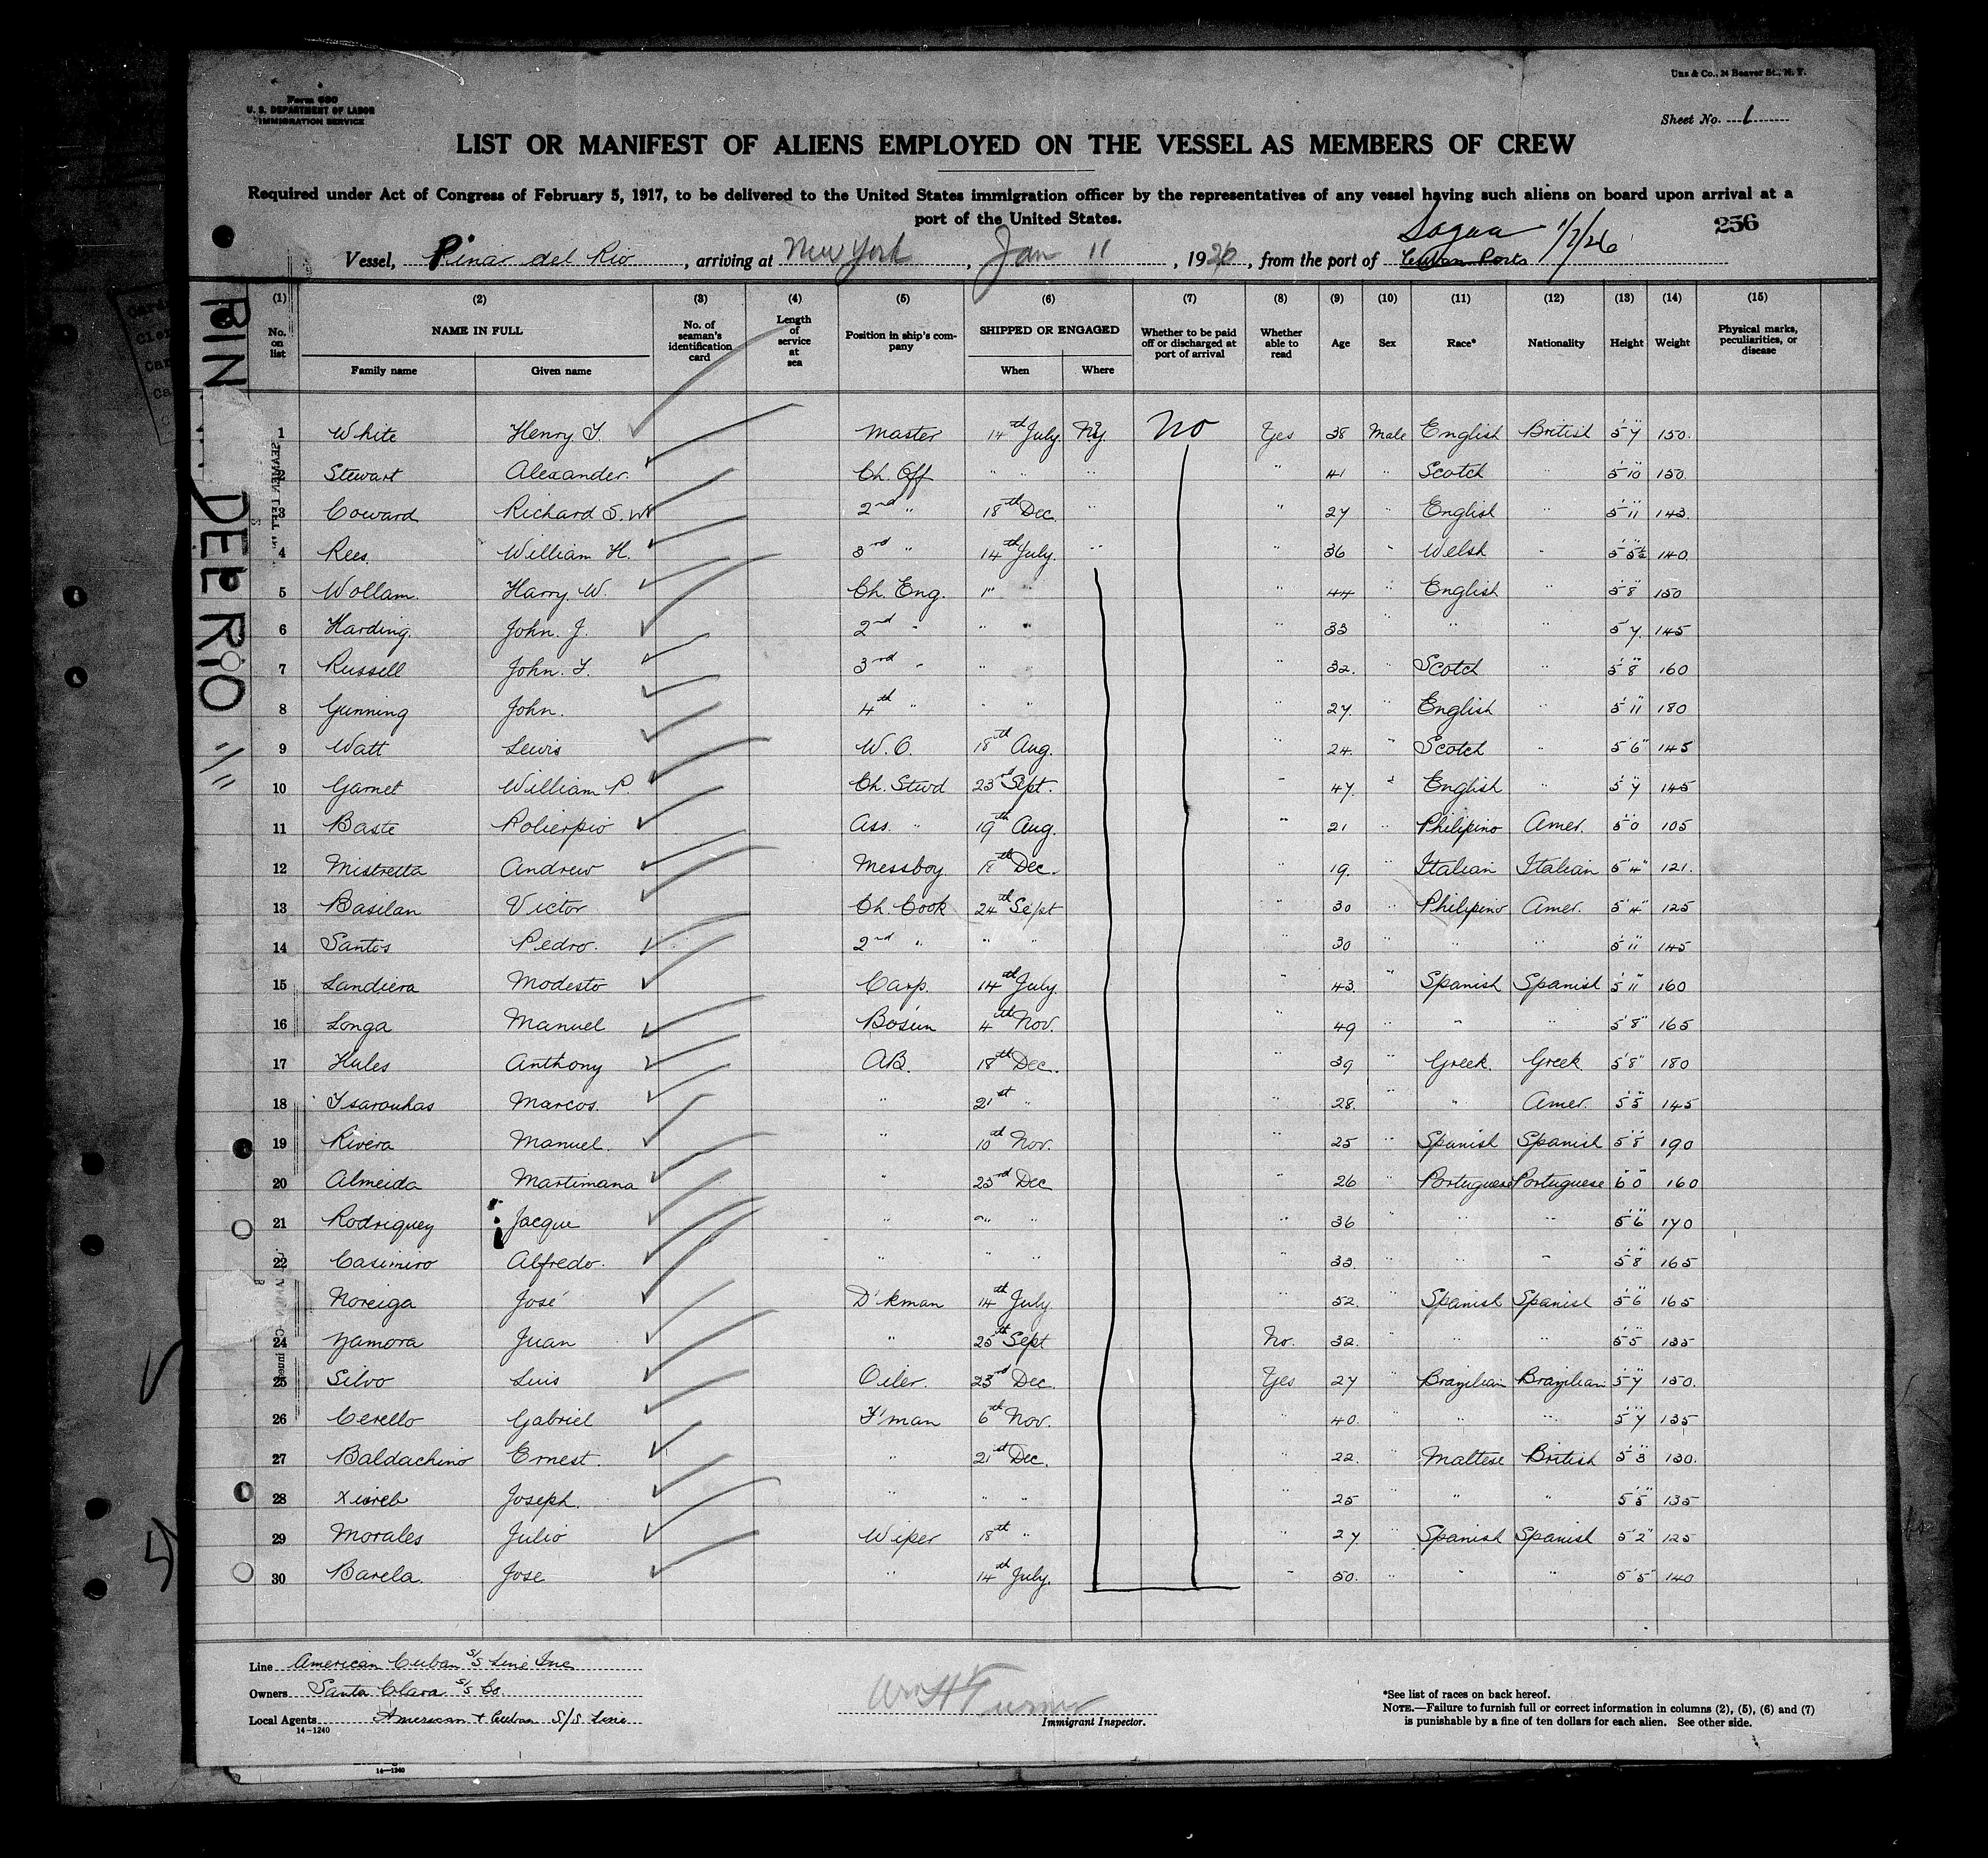 Uns & Co., 24 Beaver St., N. Y.
Form 680
U. S. DEPARTMENT OF LABOR
IMMIGRATION SERVICE
Sheet No. 1
LIST OR MANIFEST OF ALIENS EMPLOYED ON THE VESSEL AS MEMBERS OF CREW
Required under Act of Congress of February 5, 1917, to be delivered to the United States immigration officer by the representatives of any vessel having such aliens on board upon arrival at a
port of the United States.
256
Vessel, Pinar del Rio, arriving at New York, Jan 11, 1926, from the port of Cuban Ports Sagua 1/7/26
PIN DEL RIO 1/11
(1) (2) (3) (4) (5) (6) (7) (8) (9) (10) (11) (12) (13) (14) (15)
No. on list NAME IN FULL No. of seaman's identification card Length of service at sea Position in ship's company SHIPPED OR ENGAGED Whether to be paid off or discharged at port of arrival Whether able to read Age Sex Race* Nationality Height Weight Physical marks, peculiarities, or disease
Family name Given name When Where
1 White Henry T. Master 14th July NY. No Yes 38 Male English British 5'7" 150.
2 Stewart Alexander. Ch. Off " " " " 41 " Scotch " 5'10" 150.
3 Coward Richard S. W. 2nd " 18th Dec. " " 27 " English " 5'11" 143.
4 Rees. William H. 3rd " 14th July. " " 36 " Welsh " 5'5½" 140.
5 Wollam. Harry. W. Ch. Eng. " " " 44 " English " 5'8" 150
6 Harding. John. J. 2nd " " " " 33 " " " 5'7" 145
7 Russell John. T. 3rd " " " " 32. " Scotch " 5'8" 160
8 Gunning John. 4th " " " " 27. " English " 5'11" 180
9 Watt Lewis W.O. 18th Aug. " 24. " Scotch " 5'6" 145
10 Garnet William P. Ch. Stwd 23rd Sept. " 47. " English " 5'7" 145
11 Baste Policrpio Ass. " 19th Aug. " 21 " Philipino Amer. 5'0" 105
12 Mistretta Andrew Messboy 18th Dec. " 19. " Italian Italian 5'4" 121.
13 Basilan Victor Ch. Cook 24th Sept " 30 " Philipino Amer. 5'4" 125
14 Santos Pedro. 2nd " " " " 30 " " " 5'11" 145
15 Landiera Modesto Carp. 14th July. " 43. " Spanish Spanish 5'11" 160
16 Longa Manuel Bosun 4th Nov. " 49 " " " 5'8" 165
17 Hules Anthony AB. 18th Dec. " 39 " Greek. Greek 5'8" 180
18 Tsarouhas Marcos. " 21st " " 28. " " Amer. 5'5" 145
19 Rivera Manuel. " 10th Nov. " 25 " Spanish Spanish 5'8" 190
20 Almeida Martimana " 23rd Dec " 26 " Portuguese Portuguese 6'0" 160
21 Rodriquey Jacque " " " " 36 " " " 5'6" 170
22 Casimiro Alfredo. " " " " 33. " " " 5'8" 165
Noreiga José D'kman 14th July " 52. " Spanish Spanish 5'6" 165
24 Zamora Juan " 25th Sept No. 32. " " " 5'5" 135
25 Silvo Luis Oiler 23rd Dec. Yes 27 " Brazilian Brazilian 5'7" 150.
26 Cerello Gabriel F'man 6th Nov. " 40. " " " 5'7" 135
27 Baldachino Ernest. " 21st Dec. " 22. " Maltese British 5'3" 130.
28 Xuereb Joseph. " " " " 25 " " " 5'5" 135
29 Morales Julio Wiper 18th " " 27. " Spanish Spanish 5'2" 125
30 Barela. Jose " 14th July. " 50. " " " 5'5" 140
Line American Cuban S/S Line Inc
Owners Santa Clara S/S Co.
Local Agents American & Cuban S/S Line
14-1240
Wm H Turner
Immigrant Inspector.
*See list of races on back hereof.
NOTE.—Failure to furnish full or correct information in columns (2), (5), (6) and (7)
is punishable by a fine of ten dollars for each alien. See other side.
14-1240